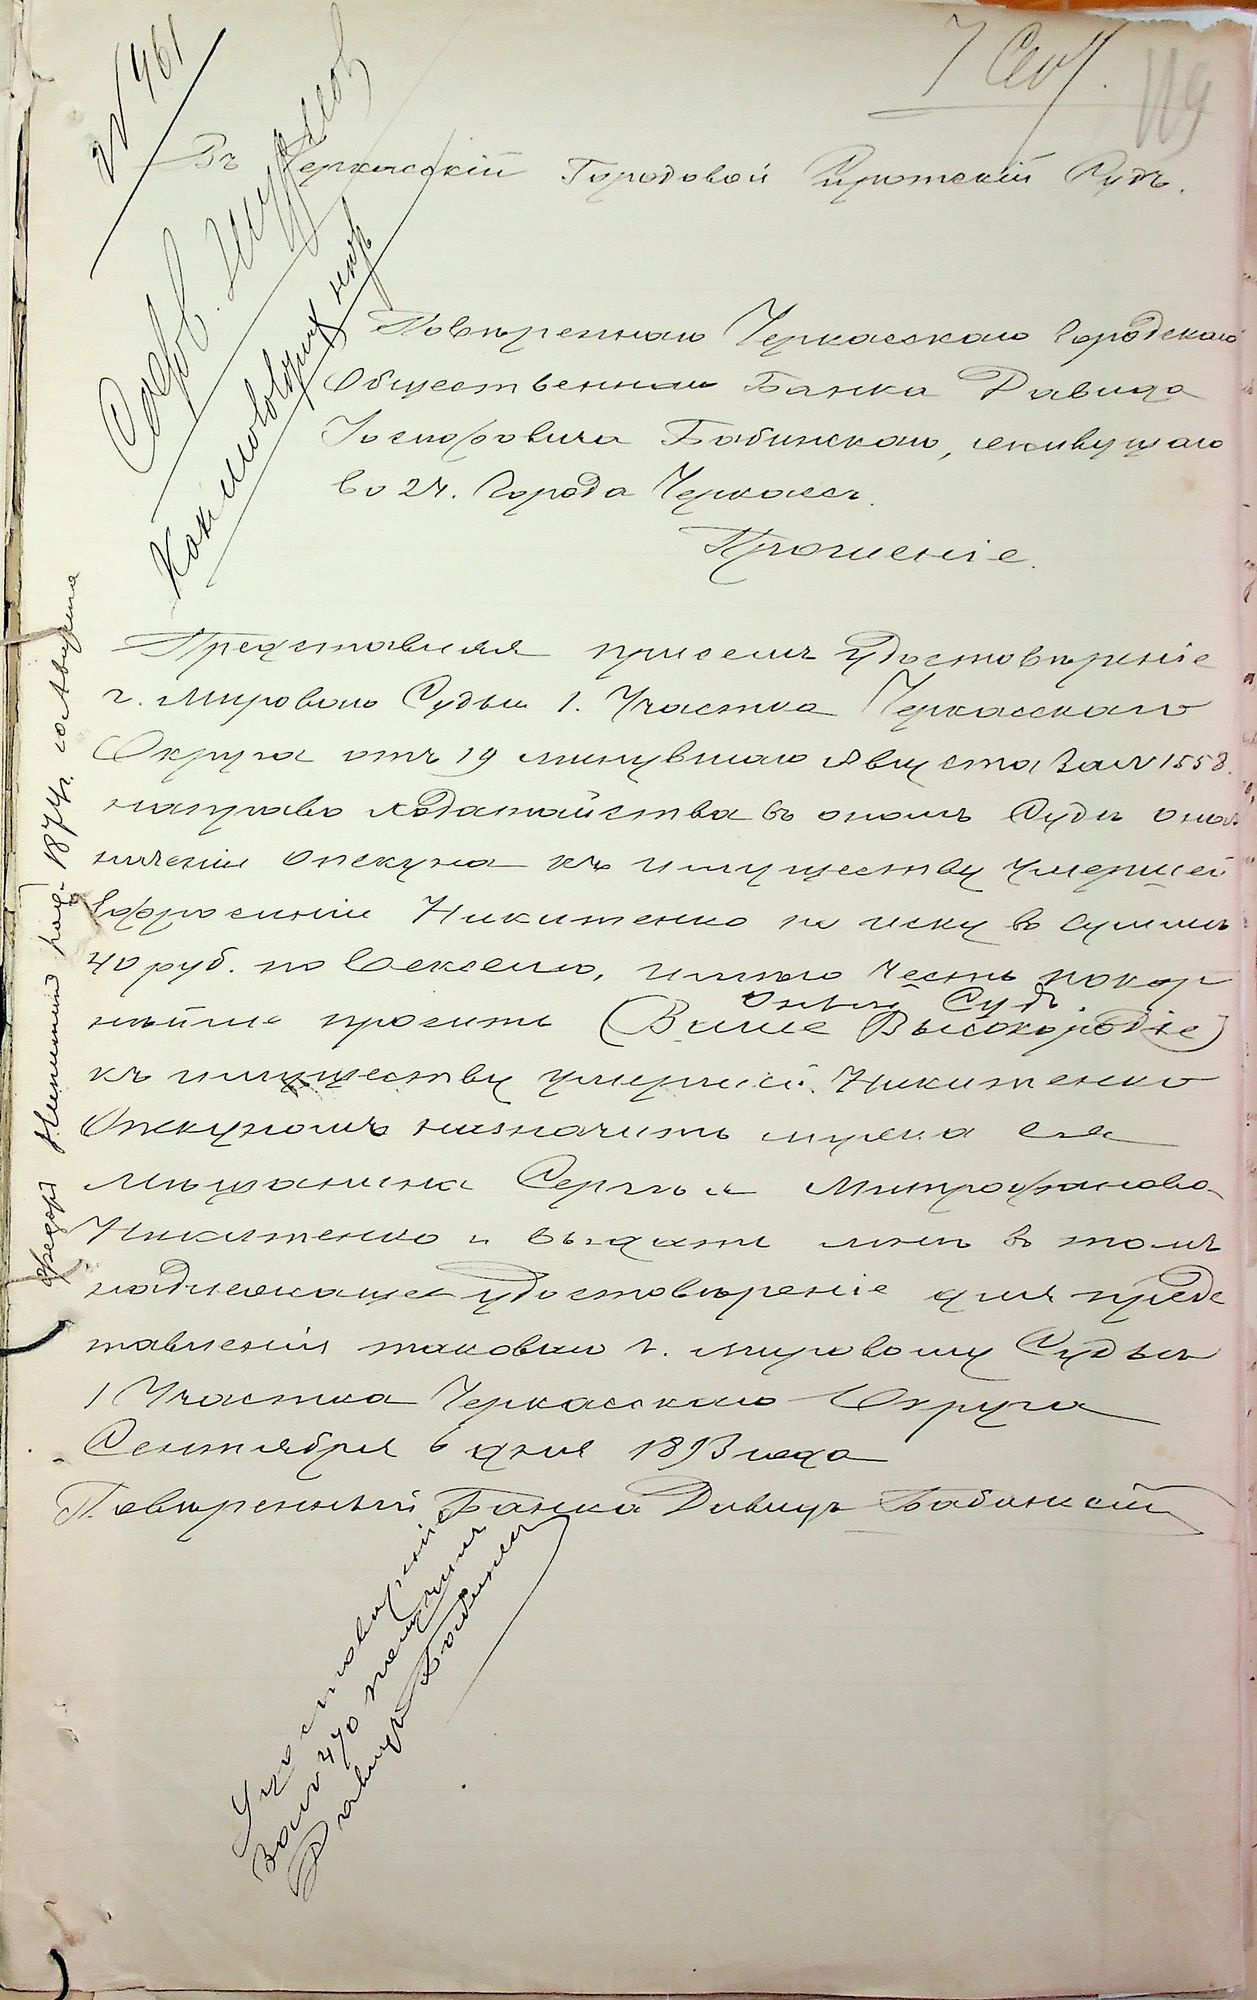 N 461
7 Сен.
119
Въ Черкасскій Городовой Сиротскій Судъ.
Повѣреннаго Черкасскаго Городскаго
Общественнаго Банка Давида
Іосифовича Бабинскаго, живущаго
во 2 ч. Города Черкассъ.
Прошеніе.
Представляя присемъ удостовѣреніе
г. Мироваго Судьи 1. Участка Черкасскаго
Округа отъ 19 минувшаго Августа за N 1558.
направо ходатайства въ ономъ Судѣ о наз
наченіи Опекуна къ имуществу умершей
Ефросиніи Никитенко по иску въ суммѣ
40 руб. по векселю, имѣю честь покор
нѣйше просить (Ваше Высокородіе)
Судъ
къ имуществу умершей Никитенко
Опекуномъ назначить мужа ея
Мѣщанина Сергѣя Митрофанова
Никитенко и выдать мнѣ въ томъ
надлежащее удостовѣреніе для предс
тавленія таковаго г. Мировому Судьѣ
1 Участка Черкасскаго Округа
Сентября 6 дня 1893 года
Повѣренный Банка Давидъ Бабинскій
Удостовѣреніе
за N 470 получилъ
Давидъ Бабинскій
1874 г.